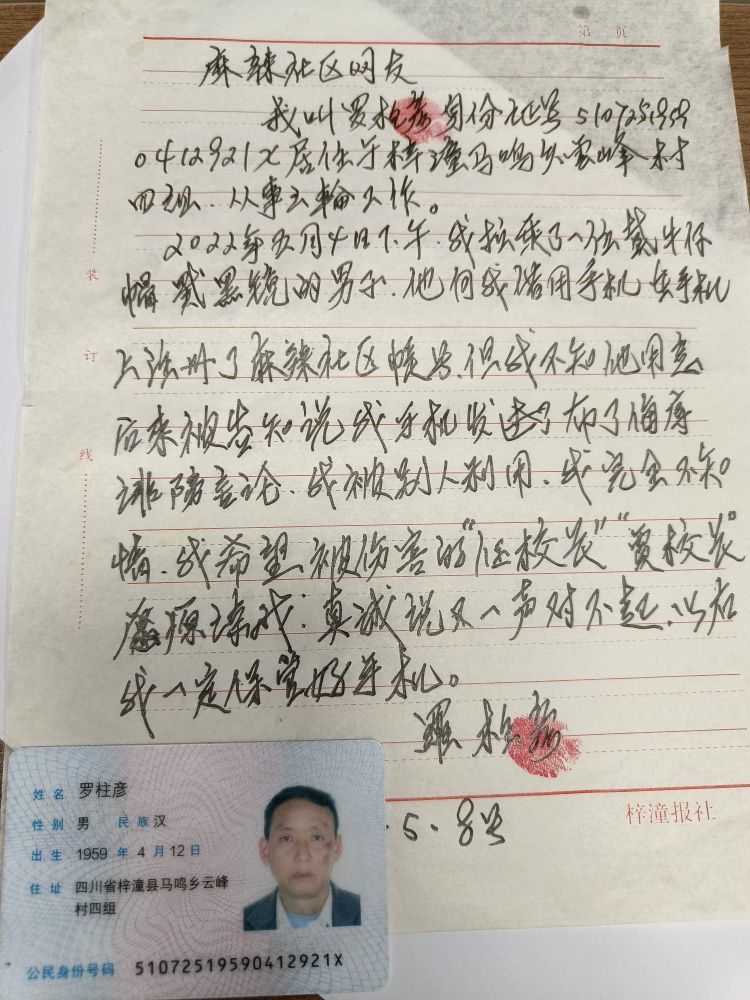 第 页
麻辣社区网友
我叫罗柱彦身份证号 5107251959
0412921X 居住于梓潼马鸣乡云峰村
四组、从事三轮工作。
2022年五月4日下午、我拉乘了一位戴牛仔
帽戴黑镜的男子、他向我借用手机 在手机
上注册了麻辣社区帐号、但我不知他用意
后来被告知说我手机发送了布了侮辱
诽谤言论、我被别人利用、我完全不知
情、我希望被伤害的"任校长""贾校长"
原谅我、真诚说又一声对不起、以后
我一定保管好手机。
羅柱彦
.5.8号
装
订
线
梓潼报社
姓名 罗柱彦
性别 男 民族 汉
出生 1959 年 4 月 12 日
住址 四川省梓潼县马鸣乡云峰
村四组
公民身份号码 51072519590412921X